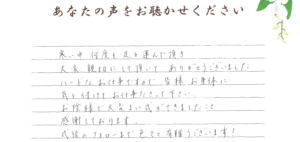 あなたの声をお聴かせください
寒い中何度も足を運んで頂き
大変親切にして頂いて ありがとうございました
ハードなお仕事ですので 皆様お身体に
気を付けてお仕事なさって下さい
お陰様で大変よい式ができましたことを
感謝しております。
式後のフォローまで 色々と有難うございます！